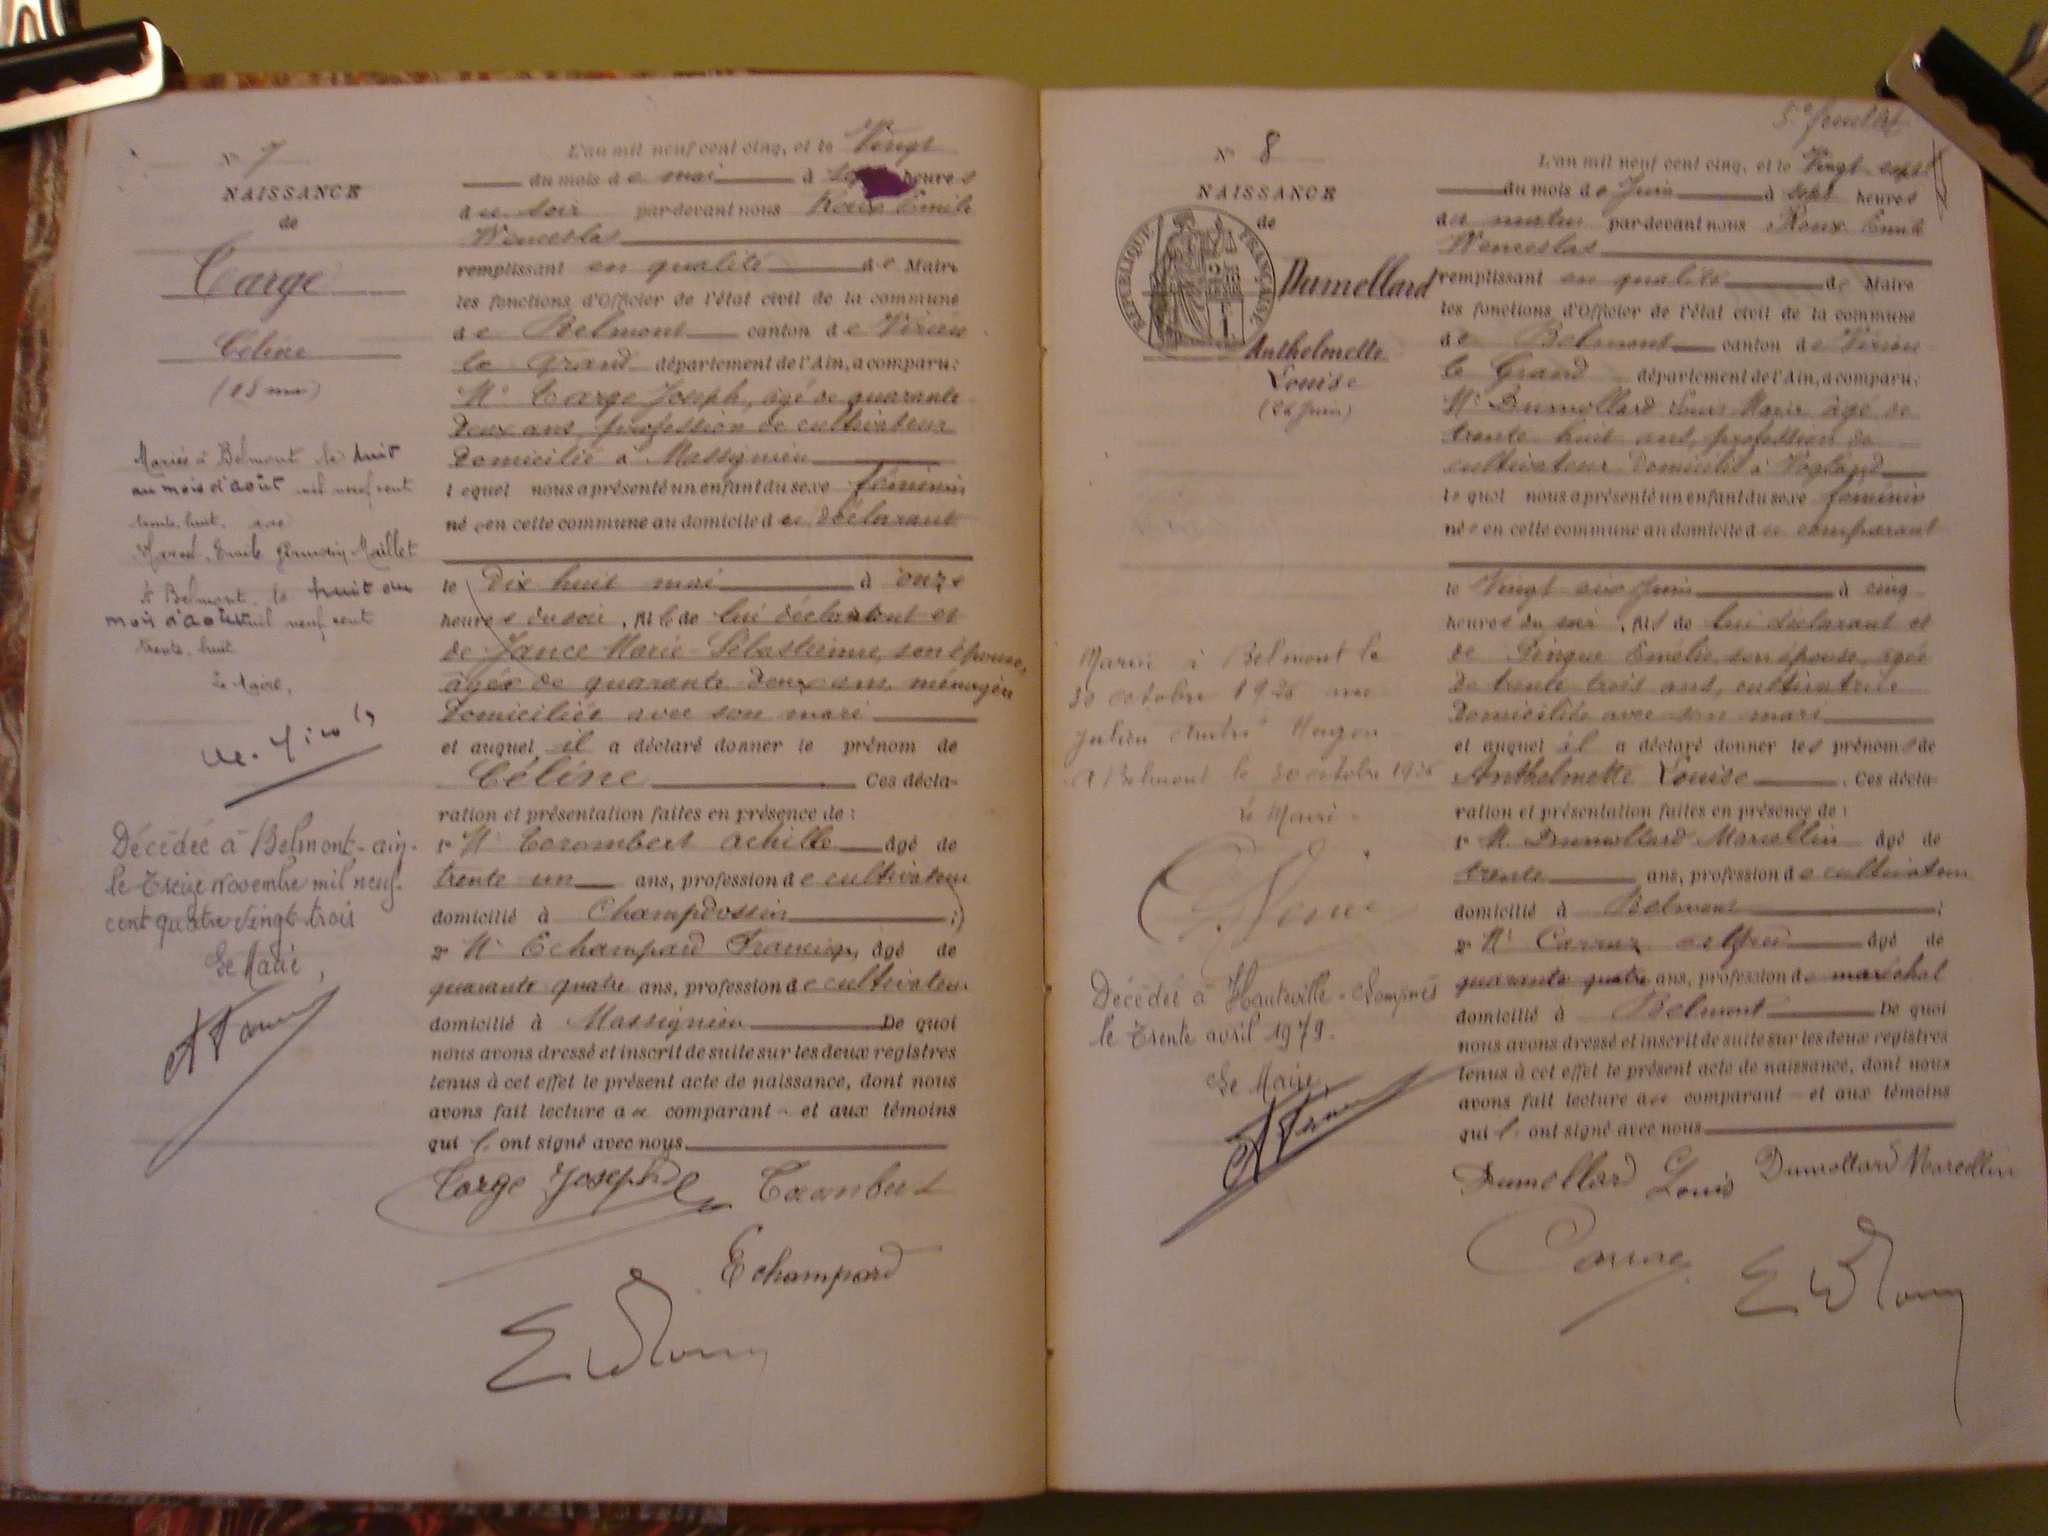 N° 7
NAISSANCE
de
Targe
Céline
(18 mai)
Mariée à Belmont le huit
au mois d'août mil neuf cent
trente huit avec
Marcel Emile Germain Maillet
A Belmont le huit au
mois d'août mil neuf cent
trente huit
Le Maire,
Décédée à Belmont-ain-
le Treize Novembre mil neuf-
cent quatre vingt trois
Le Maire,
L'an mil neuf cent cinq, et le Vingt
du mois de mai à heures
du soir par devant nous Roux Emile
Wenceslas
remplissant en qualité de Maire
les fonctions d'Officier de l'état civil de la commune
de Belmont canton de Virieu
le Grand département de l'Ain, a comparu:
Mr Targe Joseph, âgé de quarante
deux ans, profession de cultivateur
domicilié à Massignieu
lequel nous a présenté un enfant du sexe féminin
né en cette commune au domicile du déclarant
le Dix huit mai à onze
heures du soir, fille de lui déclarant et
de Jance Marie Sébastienne, son épouse,
âgée de quarante deux ans, ménagère
domiciliée avec son mari
et auquel il a déclaré donner le prénom de
Céline Ces décla-
ration et présentation faites en présence de:
1° Mr Torombert Achille âgé de
trente un ans, profession de cultivateur
domicilié à Champdossin ;
2° Mr Echampard Francisque, âgé de
quarante quatre ans, profession de cultivateur
domicilié à Massignieu De quoi
nous avons dressé et inscrit de suite sur les deux registres
tenus à cet effet le présent acte de naissance, dont nous
avons fait lecture au comparant et aux témoins
qui l'ont signé avec nous
Targe Joseph Torombert
Echampard
E W Roux
5e feuillet
N° 8
NAISSANCE
de
RÉPUBLIQUE FRANÇAISE
Dumollard
Anthelmette
Louise
(26 juin)
Mariée à Belmont le
30 octobre 1926 avec
Julien André
A Belmont le 30 octobre 1926
Le Maire
Décédée à Hauteville-Lompnès
le Trente avril 1979.
Le Maire,
L'an mil neuf cent cinq, et le Vingt sept
du mois de Juin à sept heures
du matin par devant nous Roux Emile
Wenceslas
remplissant en qualité de Maire
les fonctions d'Officier de l'état civil de la commune
de Belmont canton de Virieu
le Grand département de l'Ain, a comparu:
Mr Dumollard Louis Marie âgé de
trente huit ans, profession de
cultivateur domicilié à Vogland
lequel nous a présenté un enfant du sexe féminin
née en cette commune au domicile du comparant
le Vingt six Juin à cinq
heures du soir, fille de lui déclarant et
de Pingue Emelie, son épouse, âgée
de trente trois ans, cultivatrice
domiciliée avec son mari
et auquel il a déclaré donner les prénoms de
Anthelmette Louise. Ces décla-
ration et présentation faites en présence de:
1° M. Dumollard Marcellin âgé de
trente ans, profession de cultivateur
domicilié à Belmont ;
2° Mr Carraz Alfred âgé de
quarante quatre ans, profession de maréchal
domicilié à Belmont De quoi
nous avons dressé et inscrit de suite sur les deux registres
tenus à cet effet le présent acte de naissance, dont nous
avons fait lecture au comparant et aux témoins
qui l'ont signé avec nous
Dumollard Louis Dumollard Marcellin
Carraz E W Roux